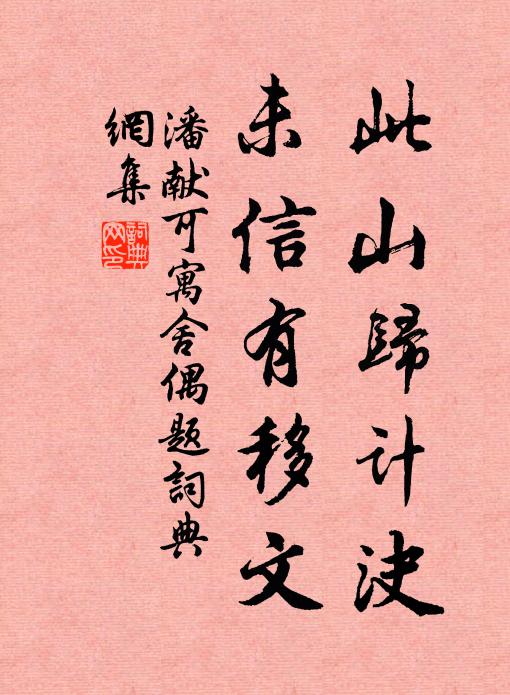 此山歸计決
未信有移文
潘献可寓舍偶题詞典
網集
詞典
网印